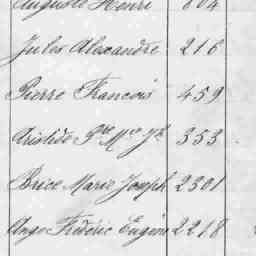 Auguste Henri 804
Jules Alexandre 216
Pierre Francois 459
Aristide Pre Mie Jh 353
Brice Marie Joseph 2301
Ange Frédéric Eugène 2218